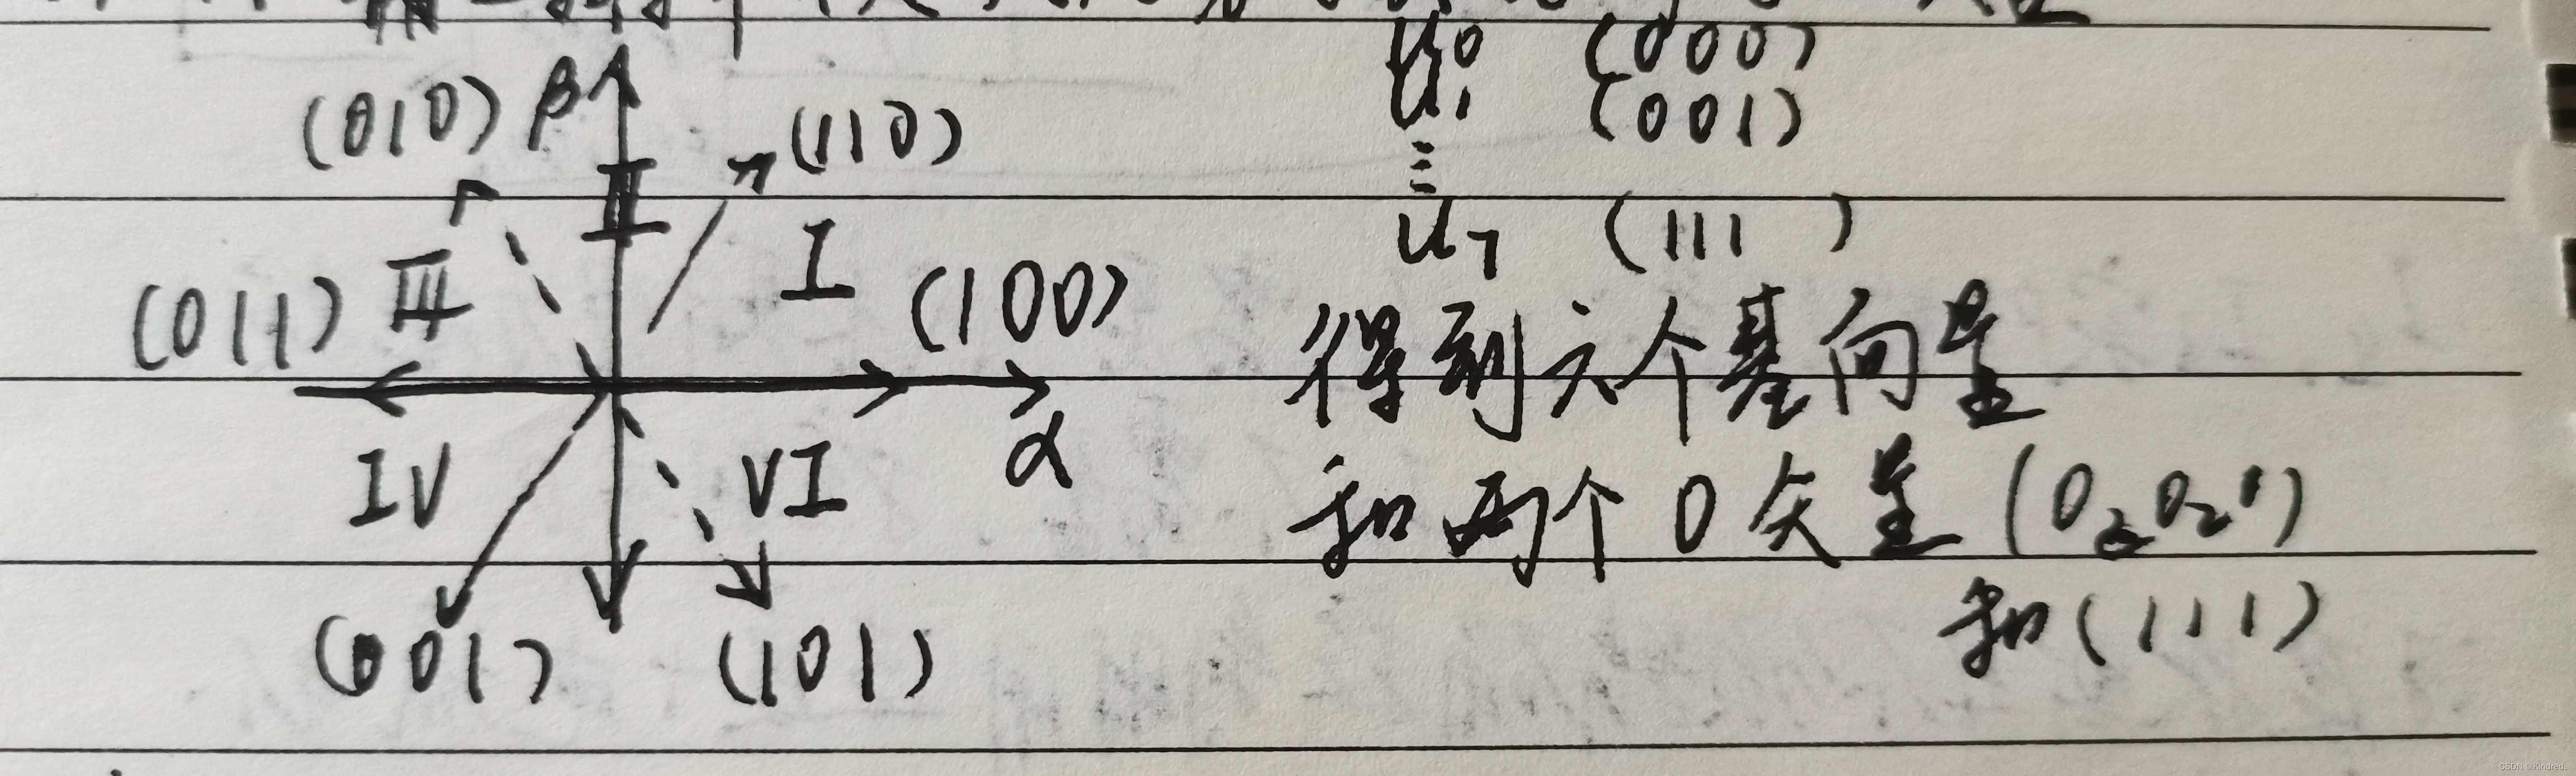 U0 (000)
(010) β (110) U1 (001)
⋮
II
U7 (111)
(011) III I (100)
得到六个基向量
α
IV VI
和两个0矢量(0201)
和(111)
(001) (101)
CSDN @Kindred